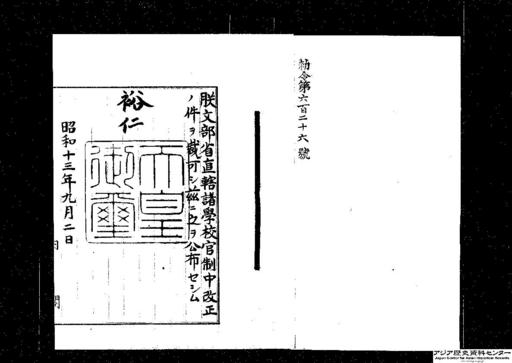 勅令第六百二十六號
朕文部省直轄諸學校官制中改正
ノ件ヲ裁可シ茲ニ之ヲ公布セシム
裕仁
天皇御璽
昭和十三年九月二日
アジア歴史資料センター
Japan Center for Asian Historical Records